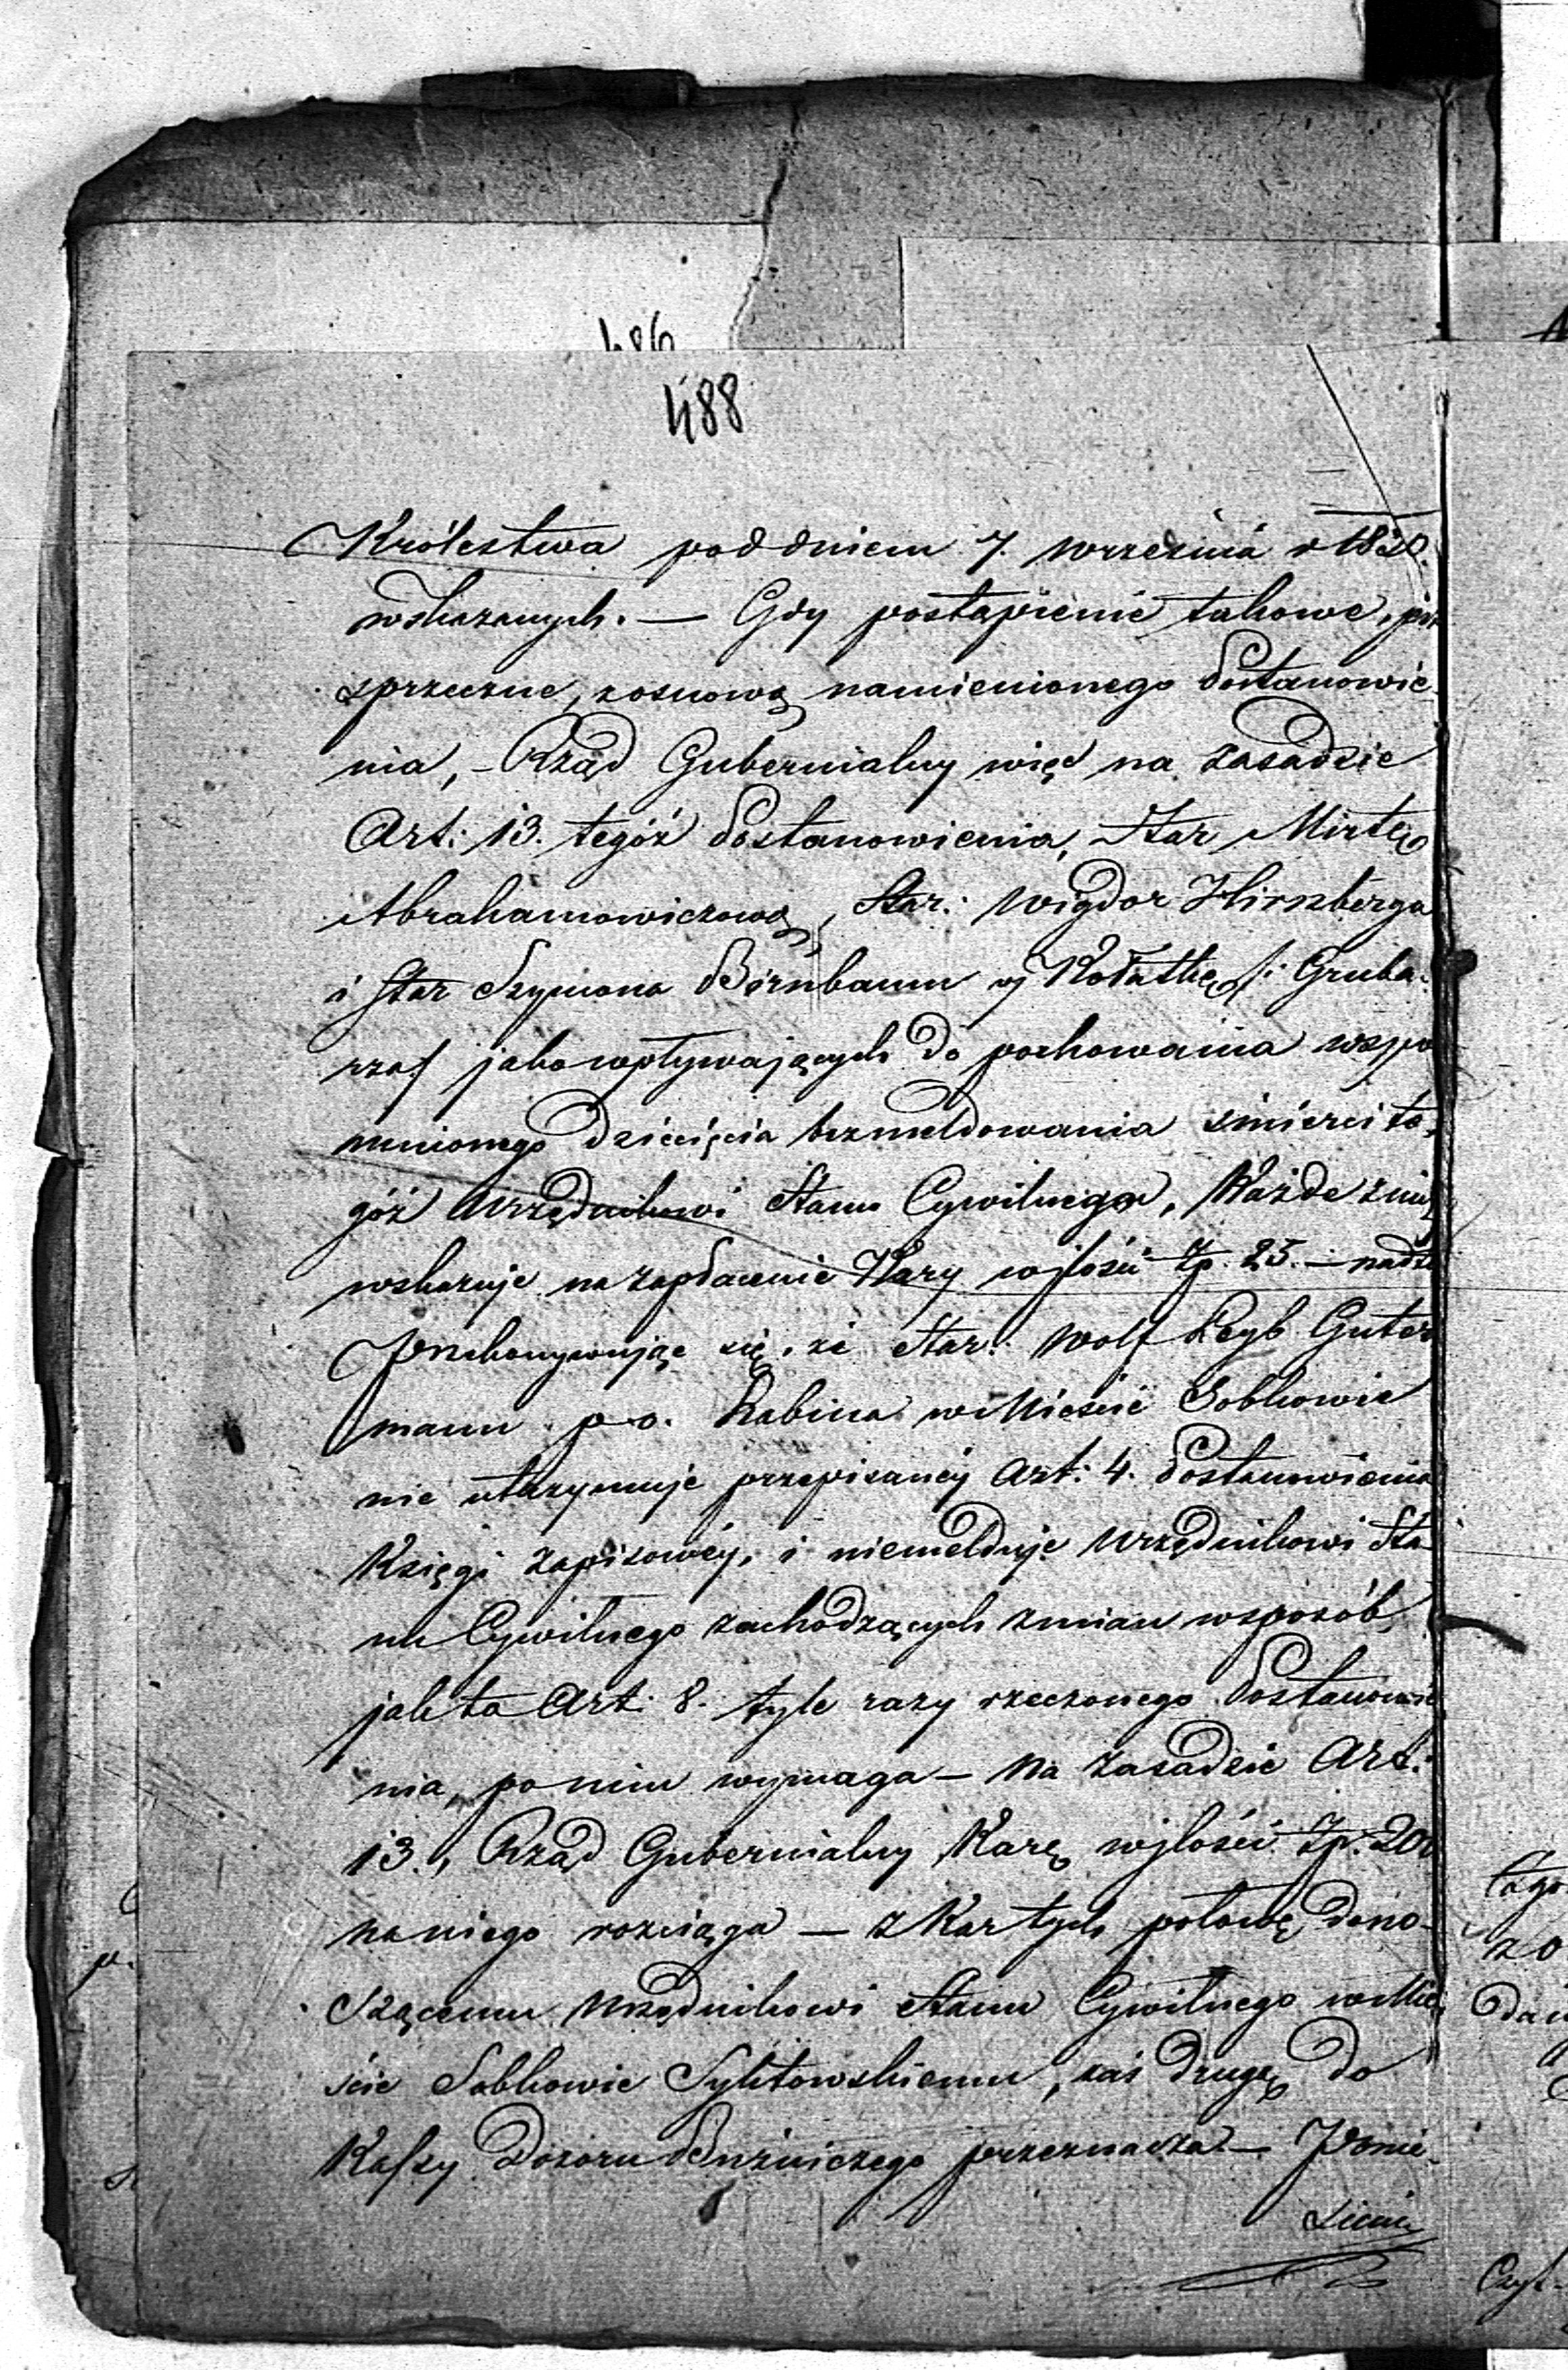 486
488
Królestwa pod dniem 7. września r 1830.
wskazanych. — Gdy postąpienie takowe,
sprzeczne, zosnową namienionego Postanowie
nia, – Rząd Gubernialny więc na zasadzie
Art: 13. tegóż Postanowienia, Star Mirlę
Abrahamowiczową, Star: Wigdor Hirszberga
i Star Szymona Birnbaum v Kołatkę /: Gruba-
rza/ jako wpływających do pochowania wspo
mnionego dziecięcia bez meldowania śmierci te-
góż Urzędnikowi Stanu Cywilnego, Każde z nich
wskazuje na zapłacenie Kary wjlości Zp. 25. – nadto
Przekonywując się, że Star: Wolf Leyb Guter
mann p. o. Rabina w Mieście Sobkowie
nie utrzymuje przepisanéj Art: 4. Postanowienia
Księgi zapisowéj, i niemelduje Urzędnikowi Sta
nu Cywilnego zachodzących zmian wsposób,
jak to Art: 8. tyle razy rzeczonego Postanowie
nia, po nim wymaga – na zasadzie Art:
13., Rząd Gubernialny Karę wjlości Zp. 200
na niego rozciąga — z Kar tych połowę dono-
szącemu Urzędnikowi Stanu Cywilnego w Mie
ście Sobkowie Sylitowskiemu, zaś drugę do
Kassy Dozoru Bużniczego przeznacza. — Ponie-